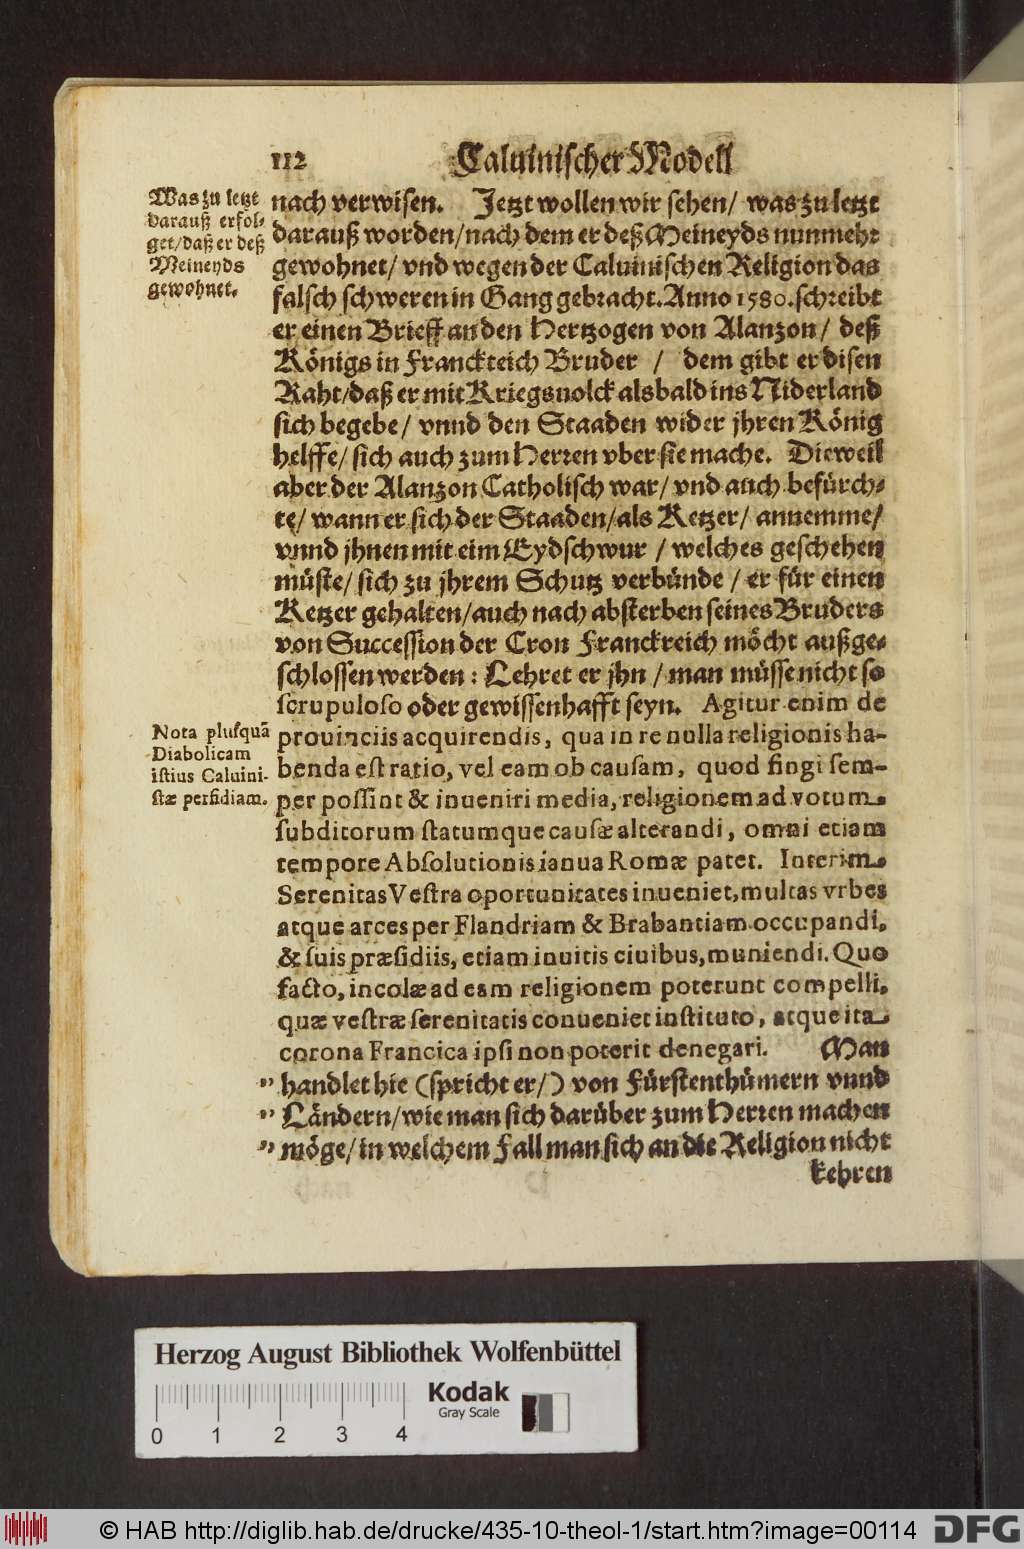 112 Caluinischer Modell
Was zu letzt
darauß erfol-
get/daß er deß
Meineyds
gewohnet.
nach verwisen. Jetzt wollen wir sehen/ was zu letzt
darauß worden/nach dem er deß Meineyds nunmehr
gewohnet/ vnd wegen der Caluinischen Religion das
falsch schweren in Gang gebracht. Anno 1580. schreibt
er einen Brieff an den Hertzogen von Alanzon/ deß
Königs in Franckreich Bruder / dem gibt er disen
Raht/daß er mit Kriegsuolck alsbald ins Niderland
sich begebe/ vnnd den Staaden wider jhren König
helffe/ sich auch zum Herren vber sie mache. Dieweil
aber der Alanzon Catholisch war/ vnd auch befürch-
te/ wann er sich der Staaden/als Ketzer/ annemme/
vnnd jhnen mit eim Eydschwur / welches geschehen
müste/ sich zu jhrem Schutz verbünde / er für einen
Ketzer gehalten/auch nach absterben seines Bruders
von Succession der Cron Franckreich möcht außge-
schlossen werden: Lehret er jhn / man müsse nicht so
scrupuloso oder gewissenhafft seyn. Agitur enim de
Nota plusquã
Diabolicam
istius Caluini-
stæ perfidiam.
prouinciis acquirendis, qua in re nulla religionis ha-
benda est ratio, vel eam ob causam, quod fingi sem-
per possint & inueniri media, religionem ad votum
subditorum statumque causæ alterandi, omni etiam
tempore Absolutionis ianua Romæ patet. Interim
Serenitas Vestra oportunitates inueniet, multas vrbes
atque arces per Flandriam & Brabantiam occupandi,
& suis præsidiis, etiam inuitis ciuibus, muniendi. Quo
facto, incolæ ad eam religionem poterunt compelli,
quæ vestræ serenitatis conueniet instituto, atque ita
corona Francica ipsi non poterit denegari. Man
" handlet hie (spricht er/) von Fürstenthümern vnnd
" Ländern/ wie man sich darüber zum Herren machen
" möge/ in welchem Fall man sich an die Religion nicht
kehren
Herzog August Bibliothek Wolfenbüttel
Kodak
Gray Scale
0 1 2 3 4
© HAB http://diglib.hab.de/drucke/435-10-theol-1/start.htm?image=00114
DFG